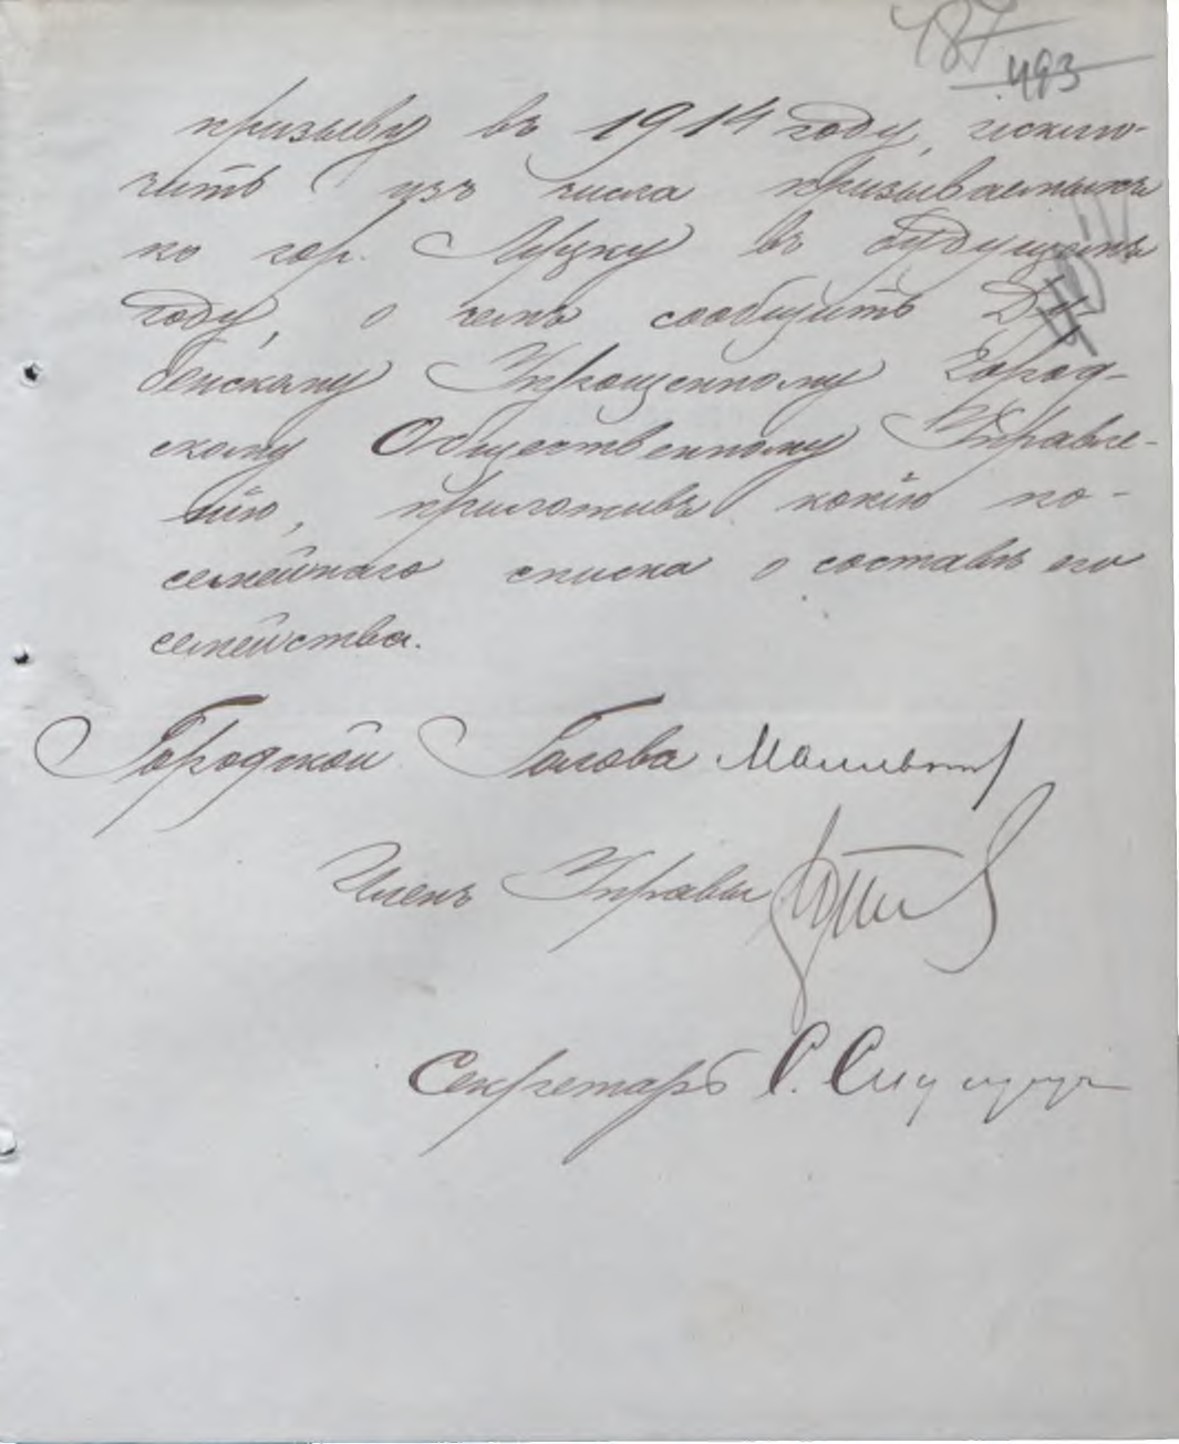 487
493
призыву въ 1914 году, исклю-
чить изъ числа призываемыхъ
по гор. Луцку въ будущемъ
году, о чемъ сообщить Ду-
бенскому Упрощенному Город-
скому Общественному Управле-
нію, приложивъ копію по-
семейнаго списка о составѣ его
семейства.
Городской Голова
Членъ Управы
Секретарь С.